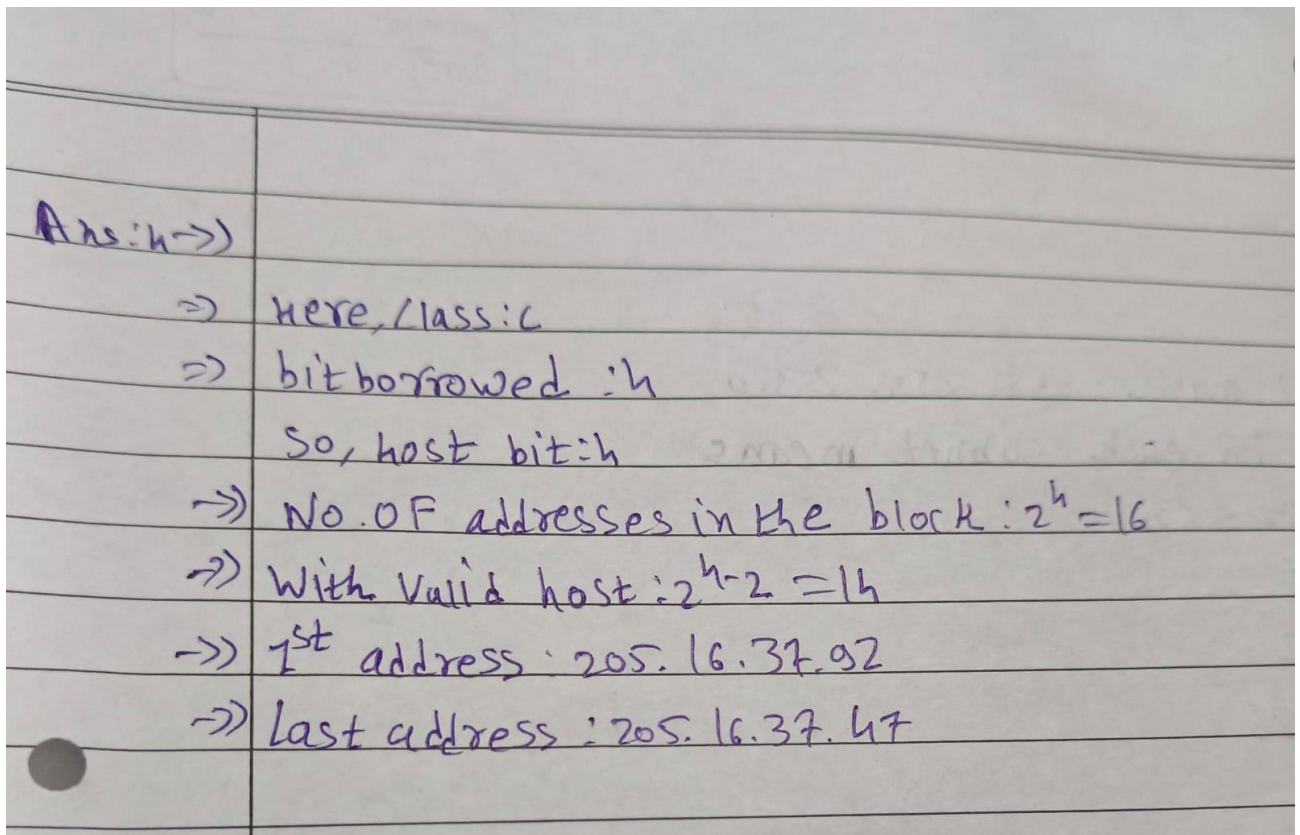 Ans:4->>
=> Here, Class:C
=> bit borrowed :4
So, host bit:4
->> No. OF addresses in the block : 2^4 = 16
->> With Valid host : 2^4-2 = 14
->> 1st address : 205.16.37.92
->> Last address : 205.16.37.47